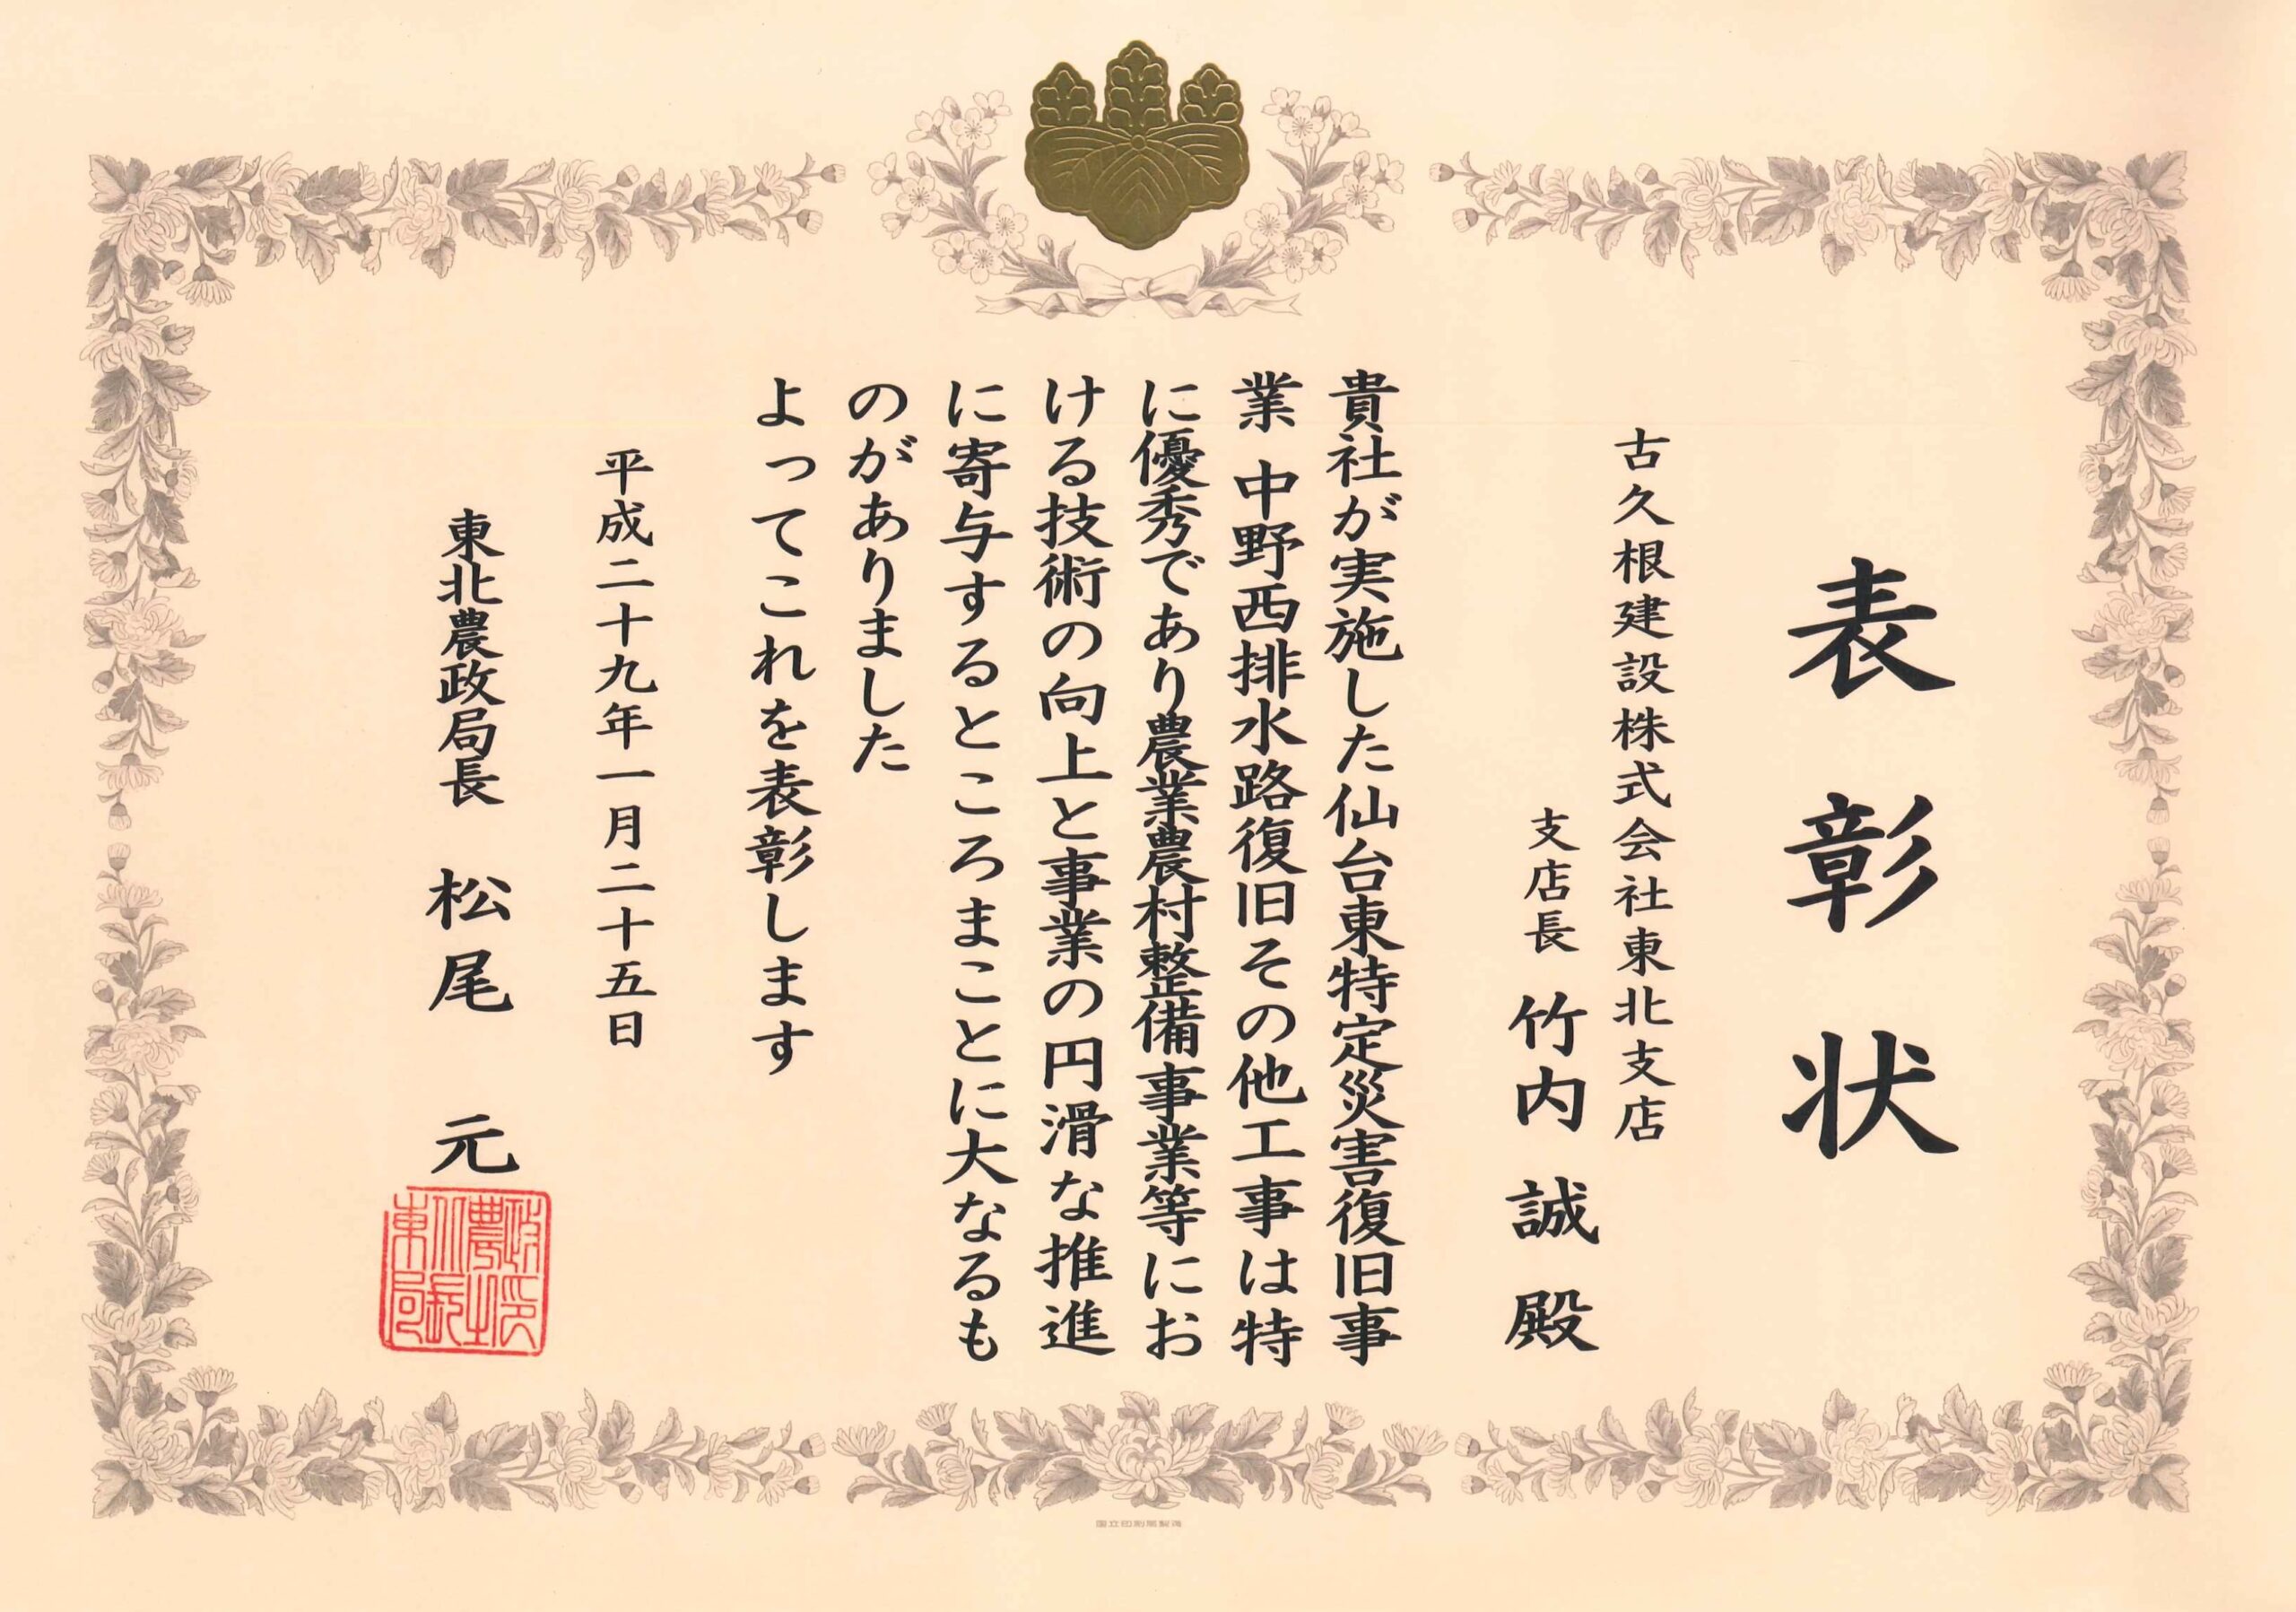 表彰状
古久根建設株式会社東北支店
支店長 竹内 誠 殿
貴社が実施した仙台東特定災害復旧事
業 中野西排水路復旧その他工事は特
に優秀であり農業農村整備事業等にお
ける技術の向上と事業の円滑な推進
に寄与するところまことに大なるも
のがありました
よってこれを表彰します
平成二十九年一月二十五日
東北農政局長 松尾 元
東北農政
局長之印
国立印刷局製造